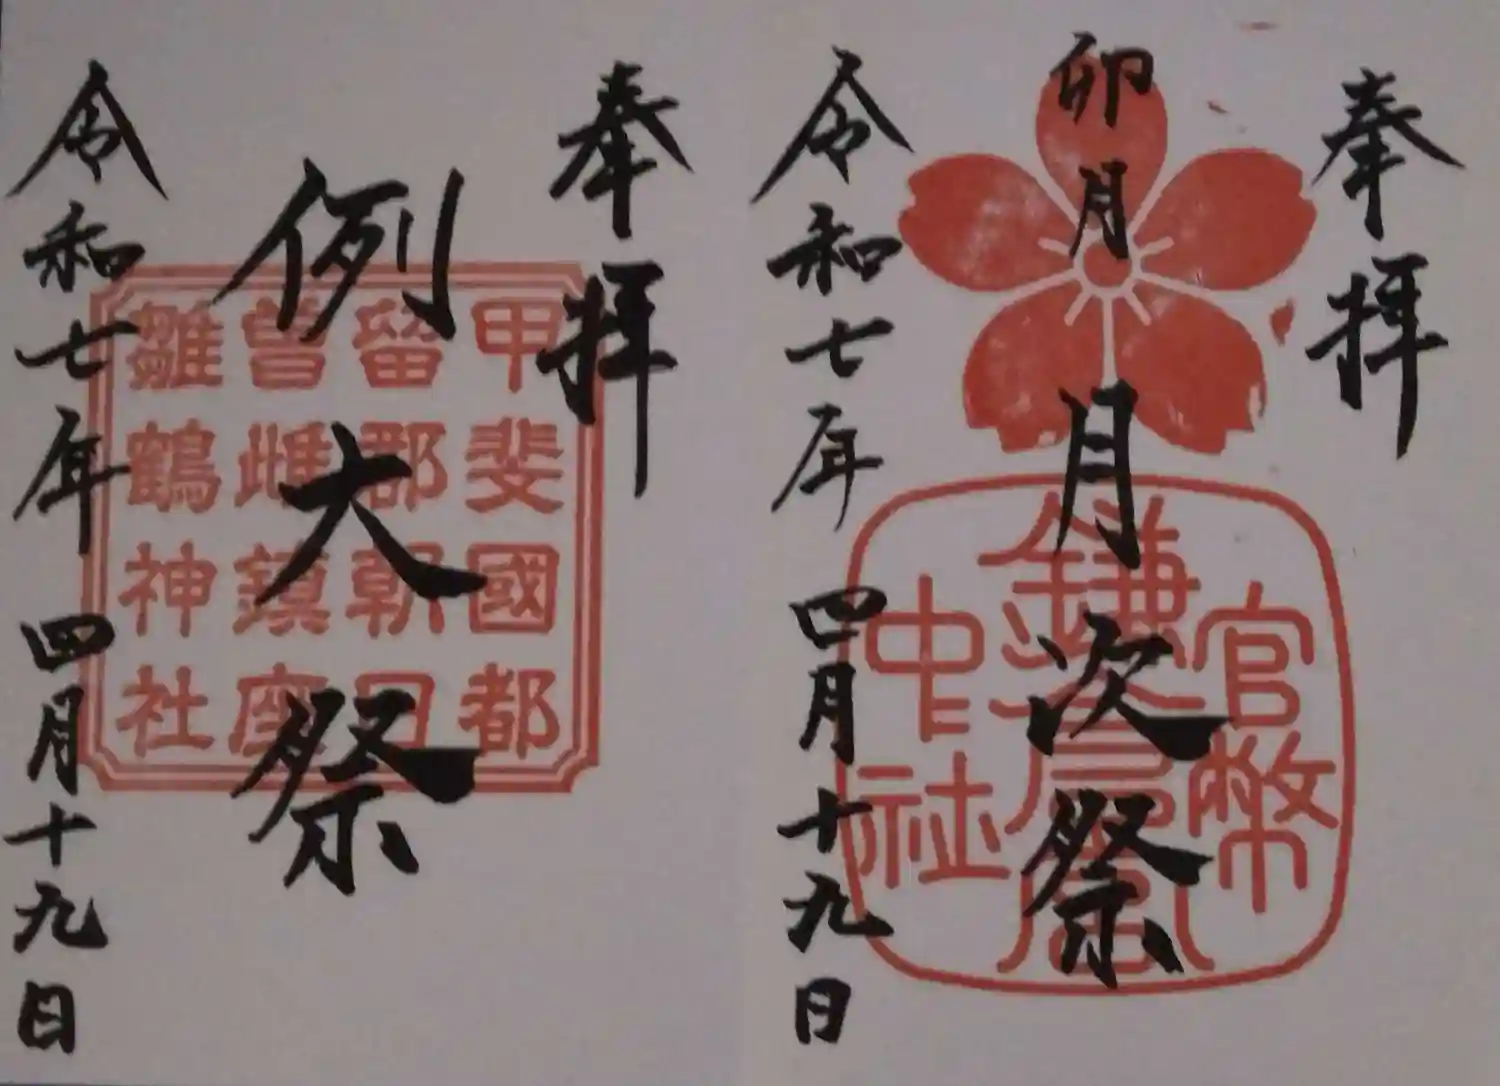 奉拝
卯月
月次祭
令和七年四月十九日
官幣
鎌倉宮
中社
奉拝
例大祭
令和七年四月十九日
甲斐國都
留郡朝日
曽雌鎮座
雛鶴神社